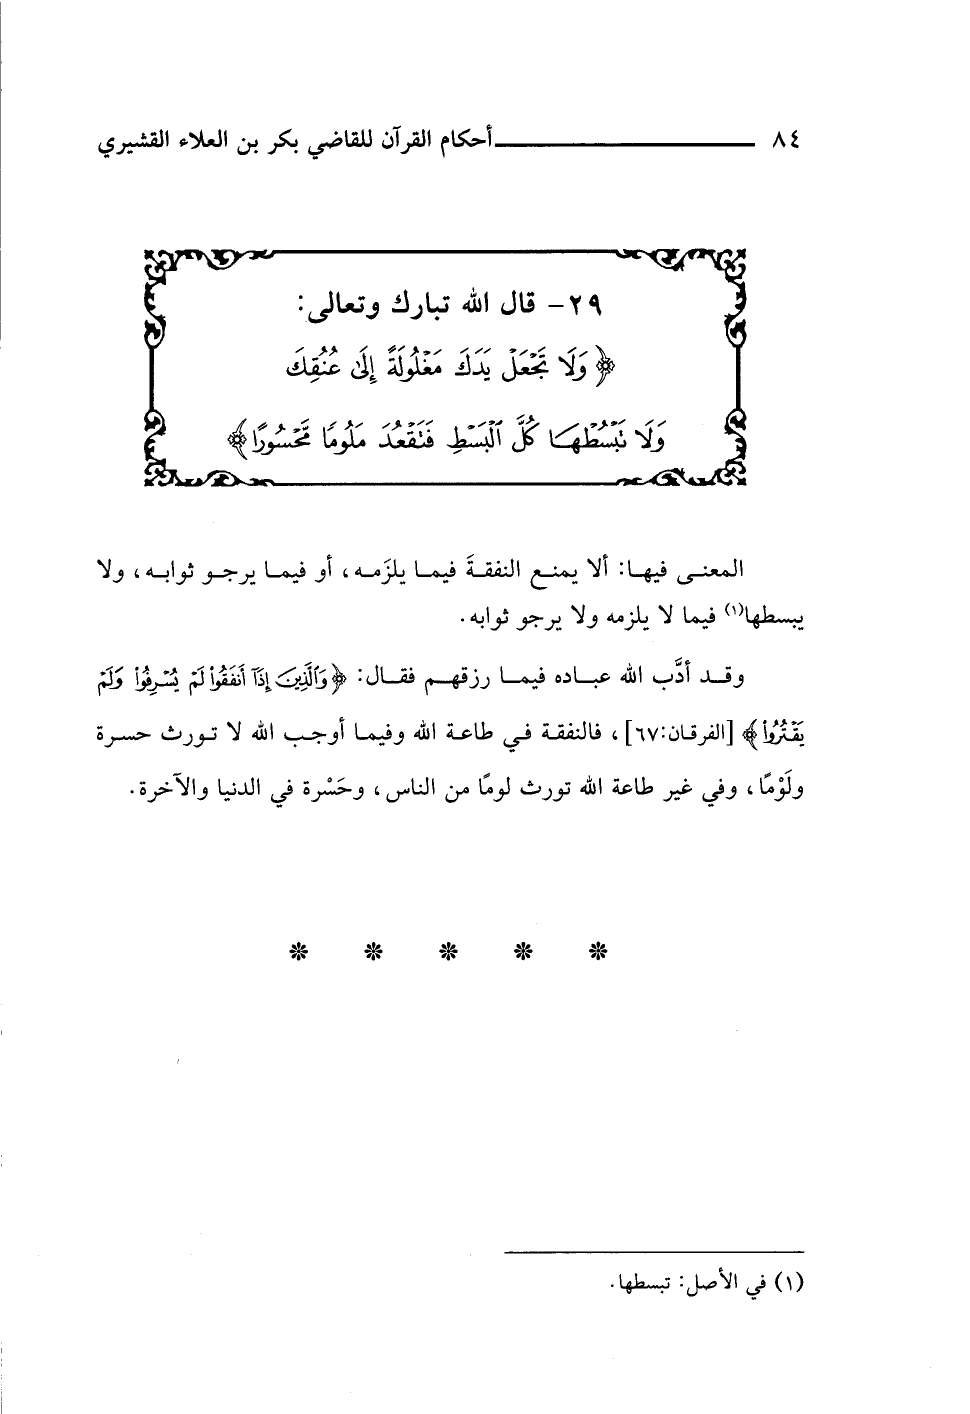 ٨٤ أحكام القرآن للقاضي بكر بن العلاء القشيري
٢٩- قال الله تبارك وتعالى:
﴿وَلَا تَجْعَلْ يَدَكَ مَغْلُولَةً إِلَىٰ عُنُقِكَ
وَلَا تَبْسُطْهَا كُلَّ ٱلْبَسْطِ فَتَقْعُدَ مَلُومًا مَّحْسُورًا﴾
المعنى فيها: ألا يمنع النفقةَ فيما يلزَمه، أو فيما يرجو ثوابه، ولا
يبسطها(١) فيما لا يلزمه ولا يرجو ثوابه.
وقد أدَّب الله عباده فيما رزقهم فقال: ﴿وَٱلَّذِينَ إِذَآ أَنفَقُوا۟ لَمْ يُسْرِفُوا۟ وَلَمْ
يَقْتُرُوا۟﴾ [الفرقان:٦٧]، فالنفقة في طاعة الله وفيما أوجب الله لا تورث حسرة
ولَوْمًا، وفي غير طاعة الله تورث لومًا من الناس، وحَسْرة في الدنيا والآخرة.
* * * * *
(١) في الأصل: تبسطها.